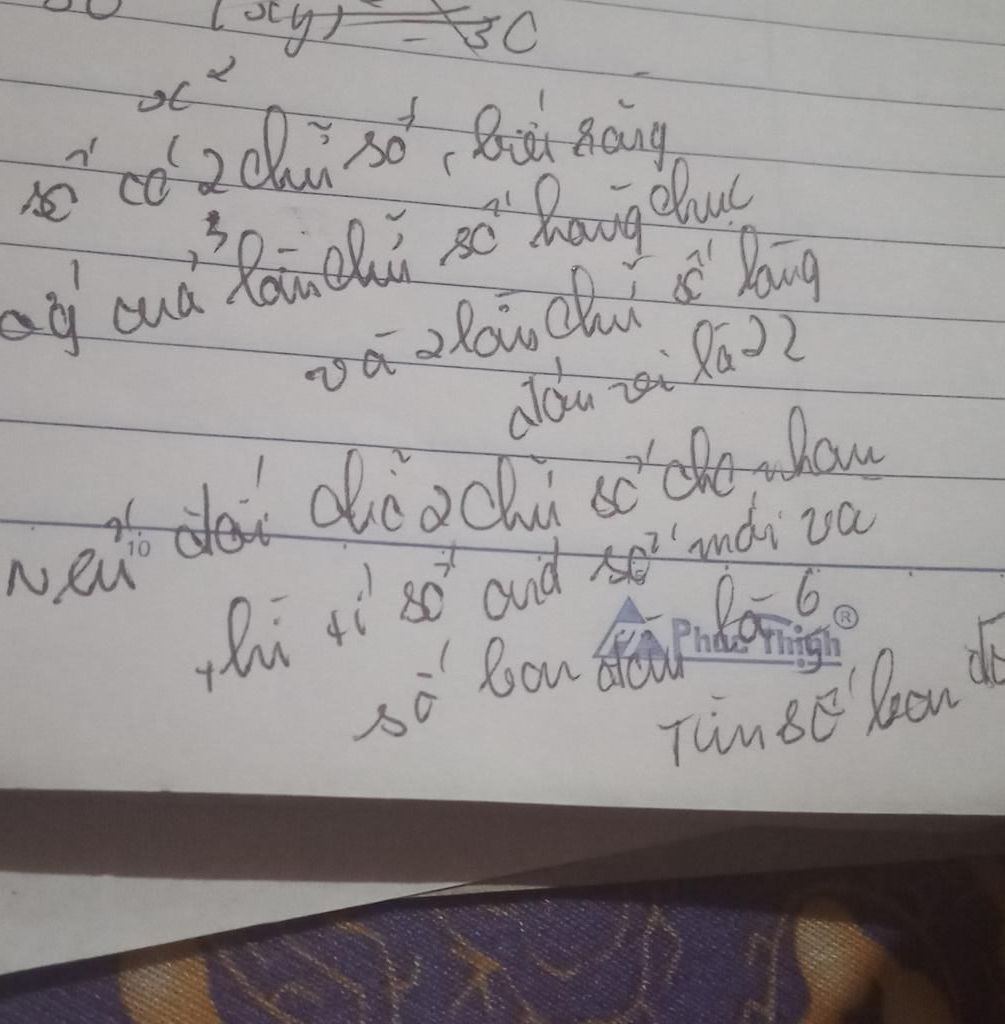 (xy) - 3C
x²
số có 2 chữ số, biết rằng
của 3 lần chữ số hàng chục
và 2 lần chữ số hàng
đơn vị là 22
Nếu đổi chỗ 2 chữ số cho nhau
10
thì tỉ số của số mới và
số ban đầu là 6
Phúc Thịnh ®
Tìm số ban